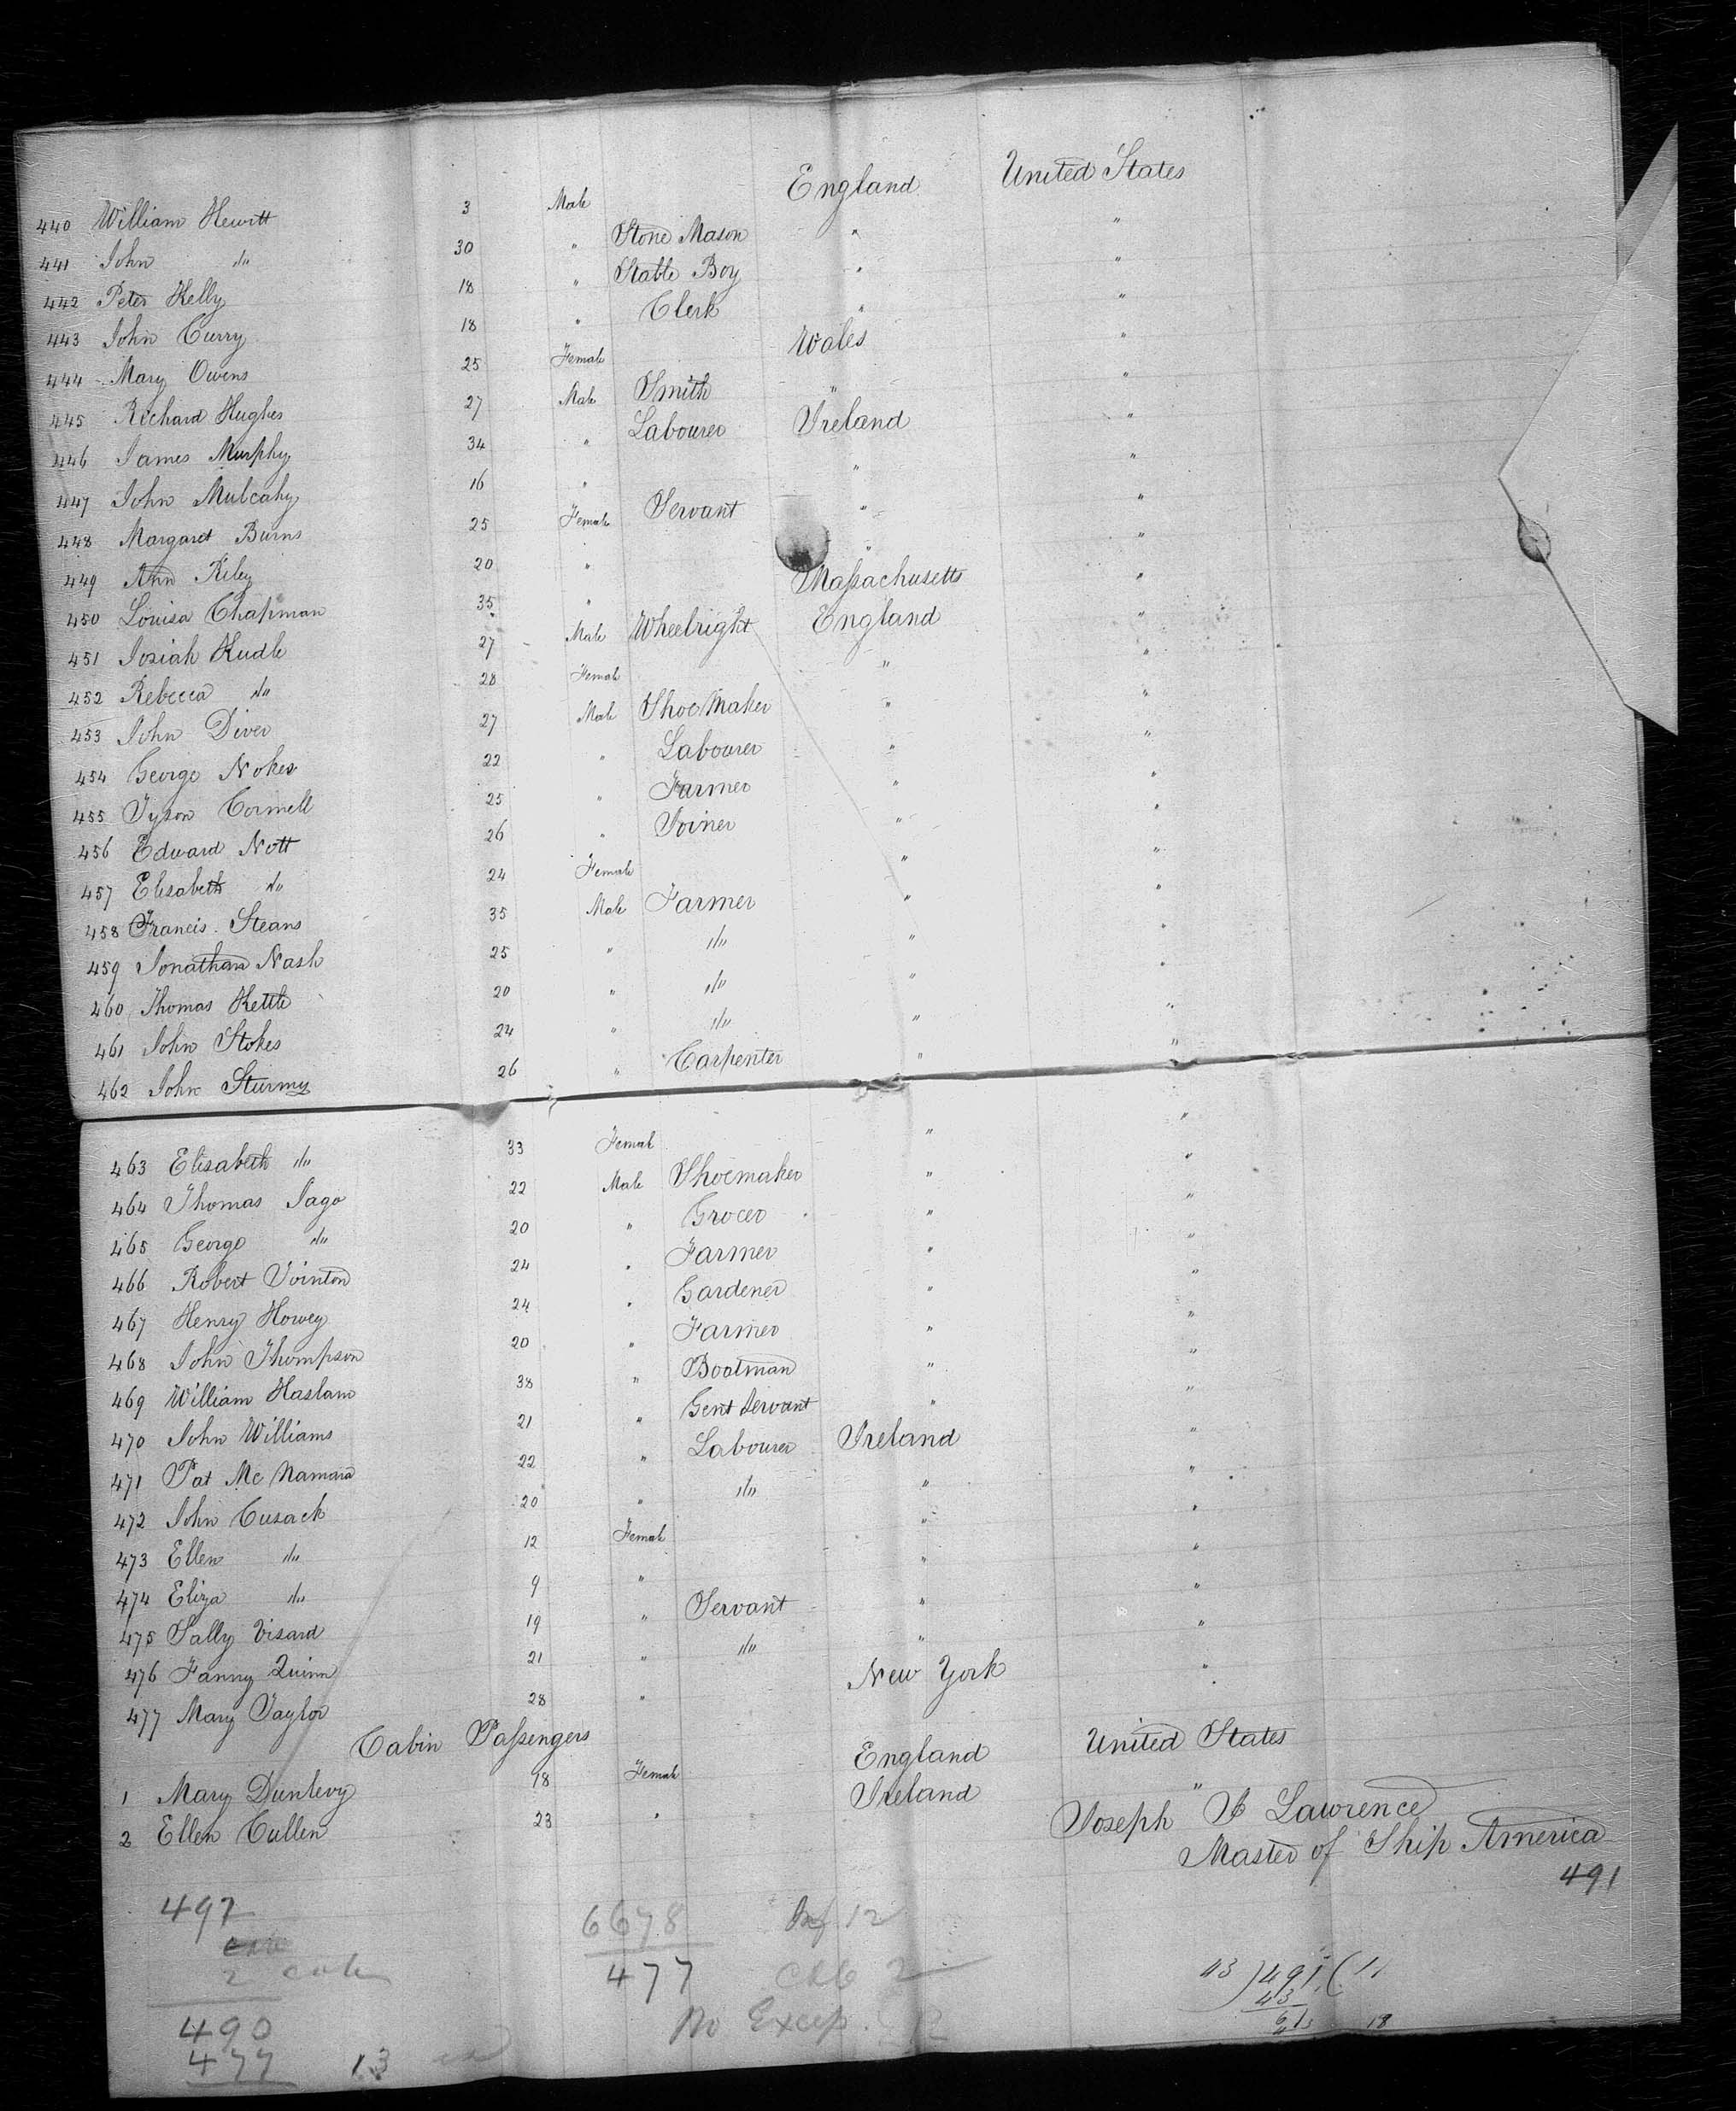 440 William Hewitt 3 Male England United States
441 John do 30 " Stone Mason " "
442 Peter Kelly 18 " Stable Boy " "
443 John Curry 18 " Clerk " "
444 Mary Owens 25 Female Wales "
445 Richard Hughes 27 Male Smith " "
446 James Murphy 34 " Labourer Ireland "
447 John Mulcahy 16 " " "
448 Margaret Burns 25 Female Servant " "
449 Ann Riley 20 " " "
450 Louisa Chapman 35 " Massachusetts "
451 Josiah Kudle 27 Male Wheelright England "
452 Rebecca do 28 Female " "
453 John Diver 27 Male Shoe Maker " "
454 George Nokes 22 " Labourer " "
455 Tyson Cormell 25 " Farmer " "
456 Edward Nott 26 " Joiner " "
457 Elisabeth do 24 Female " "
458 Francis Steans 35 Male Farmer " "
459 Jonathan Nash 25 " do " "
460 Thomas Kettle 20 " do " "
461 John Stokes 24 " do " "
462 John Sturmy 26 " Carpenter " "
463 Elisabeth do 33 Female " "
464 Thomas Jago 22 Male Shoemaker " "
465 George do 20 " Grocer " "
466 Robert Jointon 24 " Farmer " "
467 Henry Howey 24 " Gardener " "
468 John Thompson 20 " Farmer " "
469 William Haslam 38 " Boatman " "
470 John Williams 21 " Gent Servant " "
471 Pat Mc Namara 22 " Labourer Ireland "
472 John Cusack 20 " do " "
473 Ellen do 12 Female " "
474 Eliza do 9 " " "
475 Sally Visard 19 " Servant " "
476 Fanny Quinn 21 " do " "
477 Mary Taylor 28 " New York "
Cabin Passengers
1 Mary Dunlevy 18 Female England United States
2 Ellen Cullen 23 " Ireland "
Joseph J Lawrence
Master of Ship America
491
497
2 cab
490
477 13
6678
477
Inf 12
Cab 2
No Excep.
43 ) 491 ( 11
43
61
18